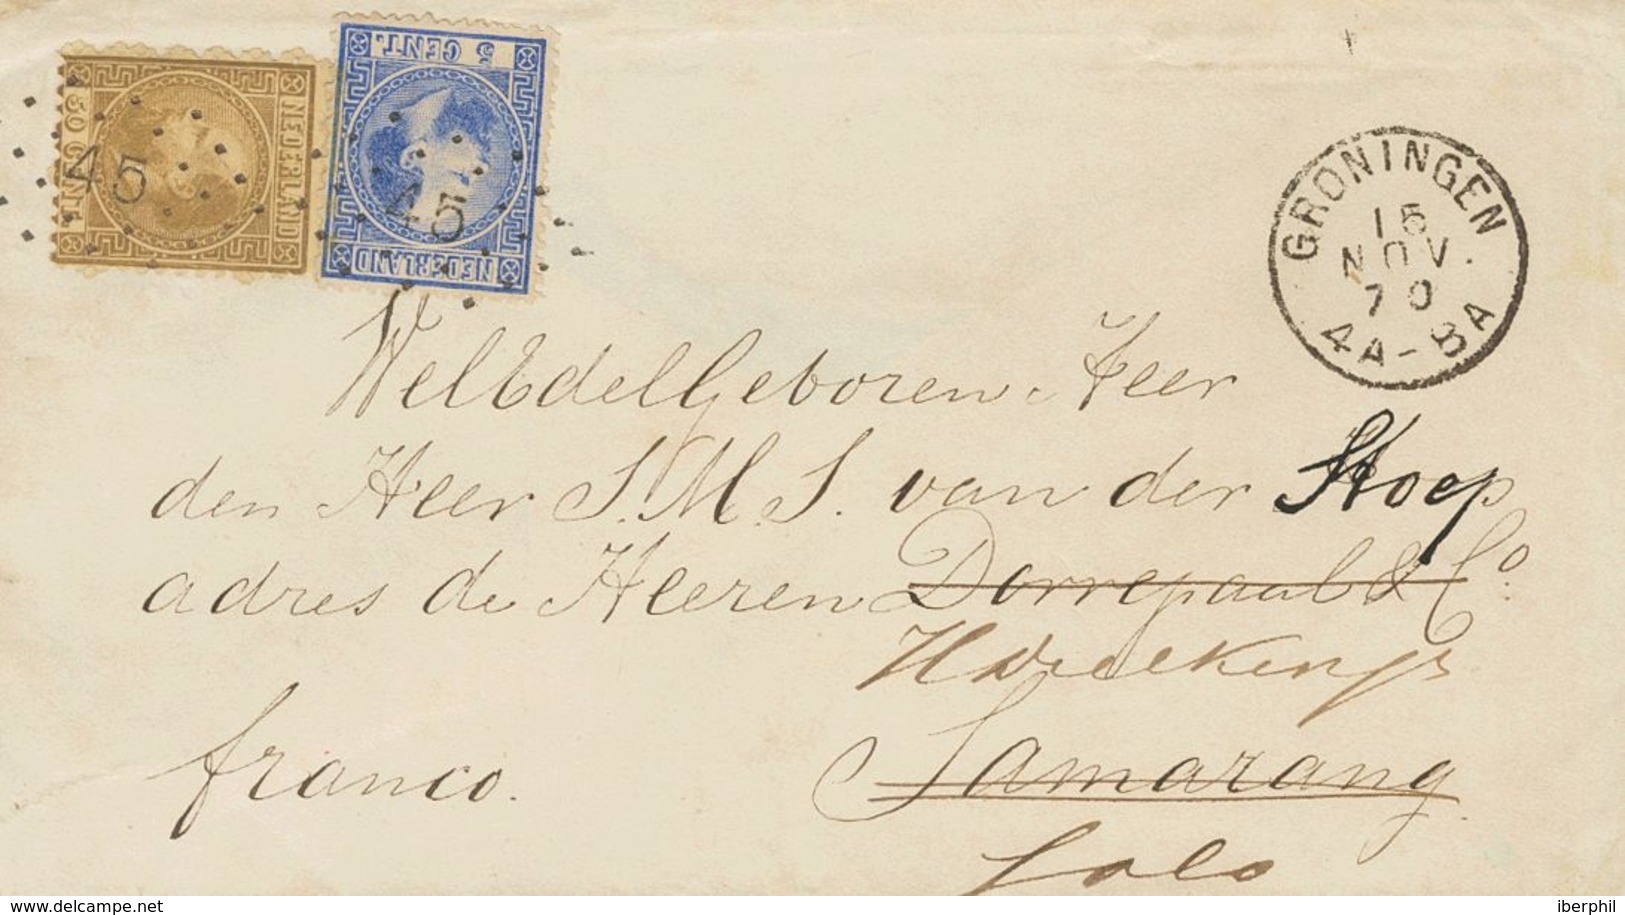 NEDERLAND
50 CENT.
45
5 CENT.
NEDERLAND
45
GRONINGEN
15
NOV.
70
4A-8A
WelEdelGeboren Heer
den Heer S.M.S. van der Stoep
adres de Heeren Dorrepaal & Co.
Samarang
franco.
Solo
www.delcampe.net
iberphil